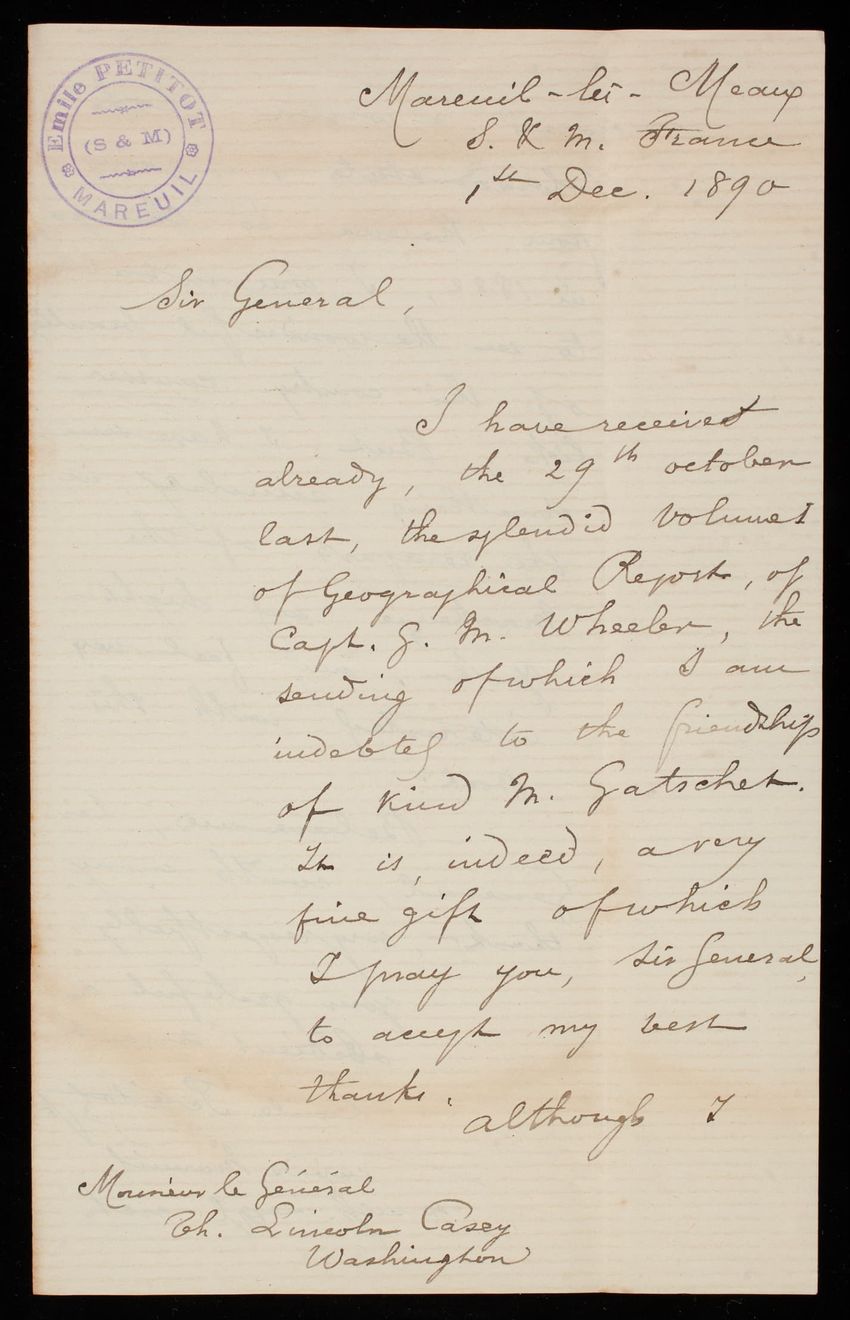 Emile PETITOT
(S & M)
MAREUIL
Mareuil-les-Meaux
S. & M. France
1st Dec. 1890
Sir General,
I have received
already, the 29th october
last, the splendid volumes
of Geographical Report, of
Capt. G. M. Wheeler, the
sending of which I am
indebted to the friendship
of kind M. Gatschet.
It is, indeed, a very
fine gift of which
I pray you, Sir General,
to accept my best
thanks.
although I
Monsieur le Général
Th. Lincoln Casey
Washington